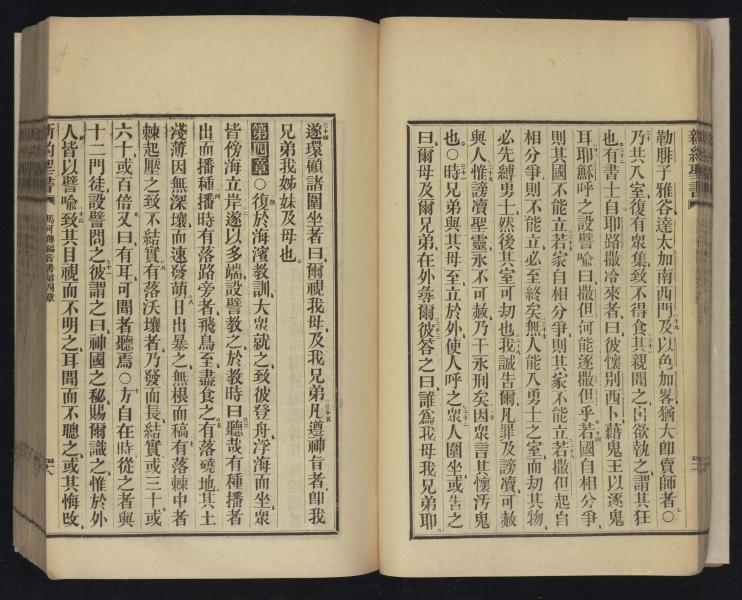 新約聖書
勒腓子雅谷達太加南西門及以色加畧猶大卽賣師者〇
乃共入室復有眾集致不得食其親聞之出欲執之謂其狂
也有書士自耶路撒冷來者曰彼懷別西卜藉鬼王以逐鬼
耳耶穌呼之設譬喻曰撒但何能逐撒但乎若國自相分爭
則其國不能立若家自相分爭則其家不能立若撒但起自
相分爭則不能立必至終矣無人能入勇士之室而刧其物
必先縛勇士然後其室可刧也我誠告爾凡罪及謗凟可赦
與人惟謗凟聖靈永不可赦乃干永刑矣因眾言其懷汚鬼
也〇時兄弟與其母至立於外使人呼之眾人圍坐或告之
曰爾母及爾兄弟在外尋爾彼答之曰誰為我母我兄弟耶
遂環顧諸圍坐者曰爾視我母及我兄弟凡遵神旨者卽我
兄弟我姊妹及母也
第四章〇復於海濱教訓大眾就之致彼登舟浮海而坐眾
皆傍海立岸遂以多端設譬教之於教時曰聽哉有種播者
出而播種播時有落路旁者飛鳥至盡食之有落磽地其土
淺薄因無深壤而速發萌日出暴之無根而稿有落棘中者
棘起壓之致不結實有落沃壤者乃發而長結實或三十或
六十或百倍又曰有耳可聞者聽焉〇方自在時從之者與
十二門徒設譬問之彼謂之曰神國之秘賜爾識之惟於外
人皆以譬喻致其目視而不明之耳聞而不聰之或其悔改
新約聖書 馬可傳福音書第四章